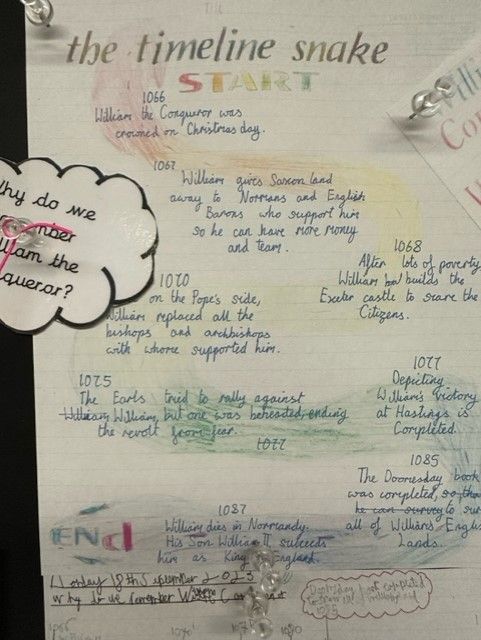 the timeline snake
START
1066
William the Conqueror was
crowned on Christmas day.
1067
William gives Saxon land
away to Normans and English
Barons who support him
so he can have more money
and team.
1068
After lots of poverty
William builds the
Exeter castle to scare the
Citizens.
hy do we
the
queror?
1070
on the Pope's side,
William replaced all the
bishops and archbishops
with whome supported him.
1075
The Earls tried to rally against
William William, but one was beheaded, ending
the revolt from fear.
1077
1077
Depicting
William's victory
at Hastings is
Completed.
1085
The Doomesday book
was completed, so tha
he can survey to sur
all of William's Englis
Lands.
1087
William dies in Normandy.
His Son William II succeeds
him as King England.
END
Monday 18th September 2023
Why do we remember
Doomsday
not completed